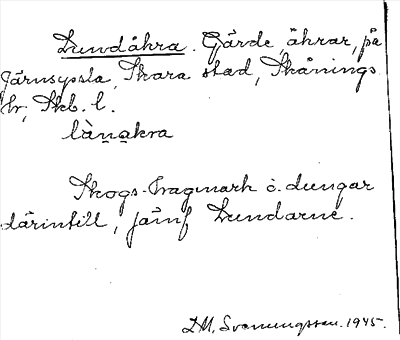 Lundåkra. Gärde, åkrar, på
Järnsyssla, Skara stad, Skånings
hr, Skb. l.
là̀nakra
Skogs- hagmark o. dungar
därintill, jämf Lundarne.
D.M. Svenungsson. 1945.